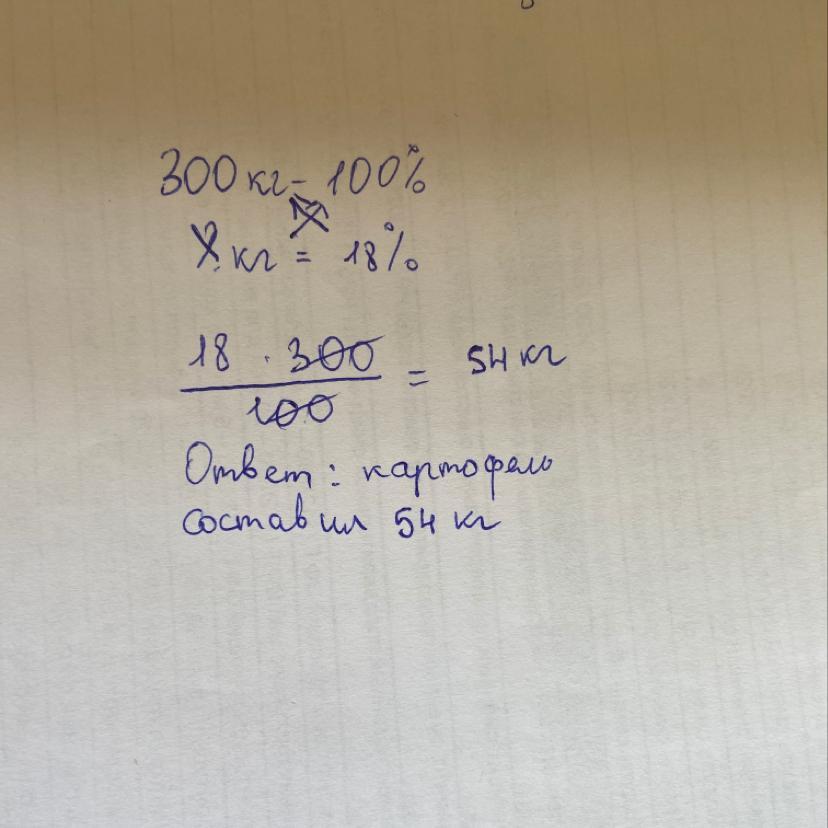 300 кг - 100%
X кг = 18%
18 · 300
100
= 54 кг
Ответ: картофель
составил 54 кг